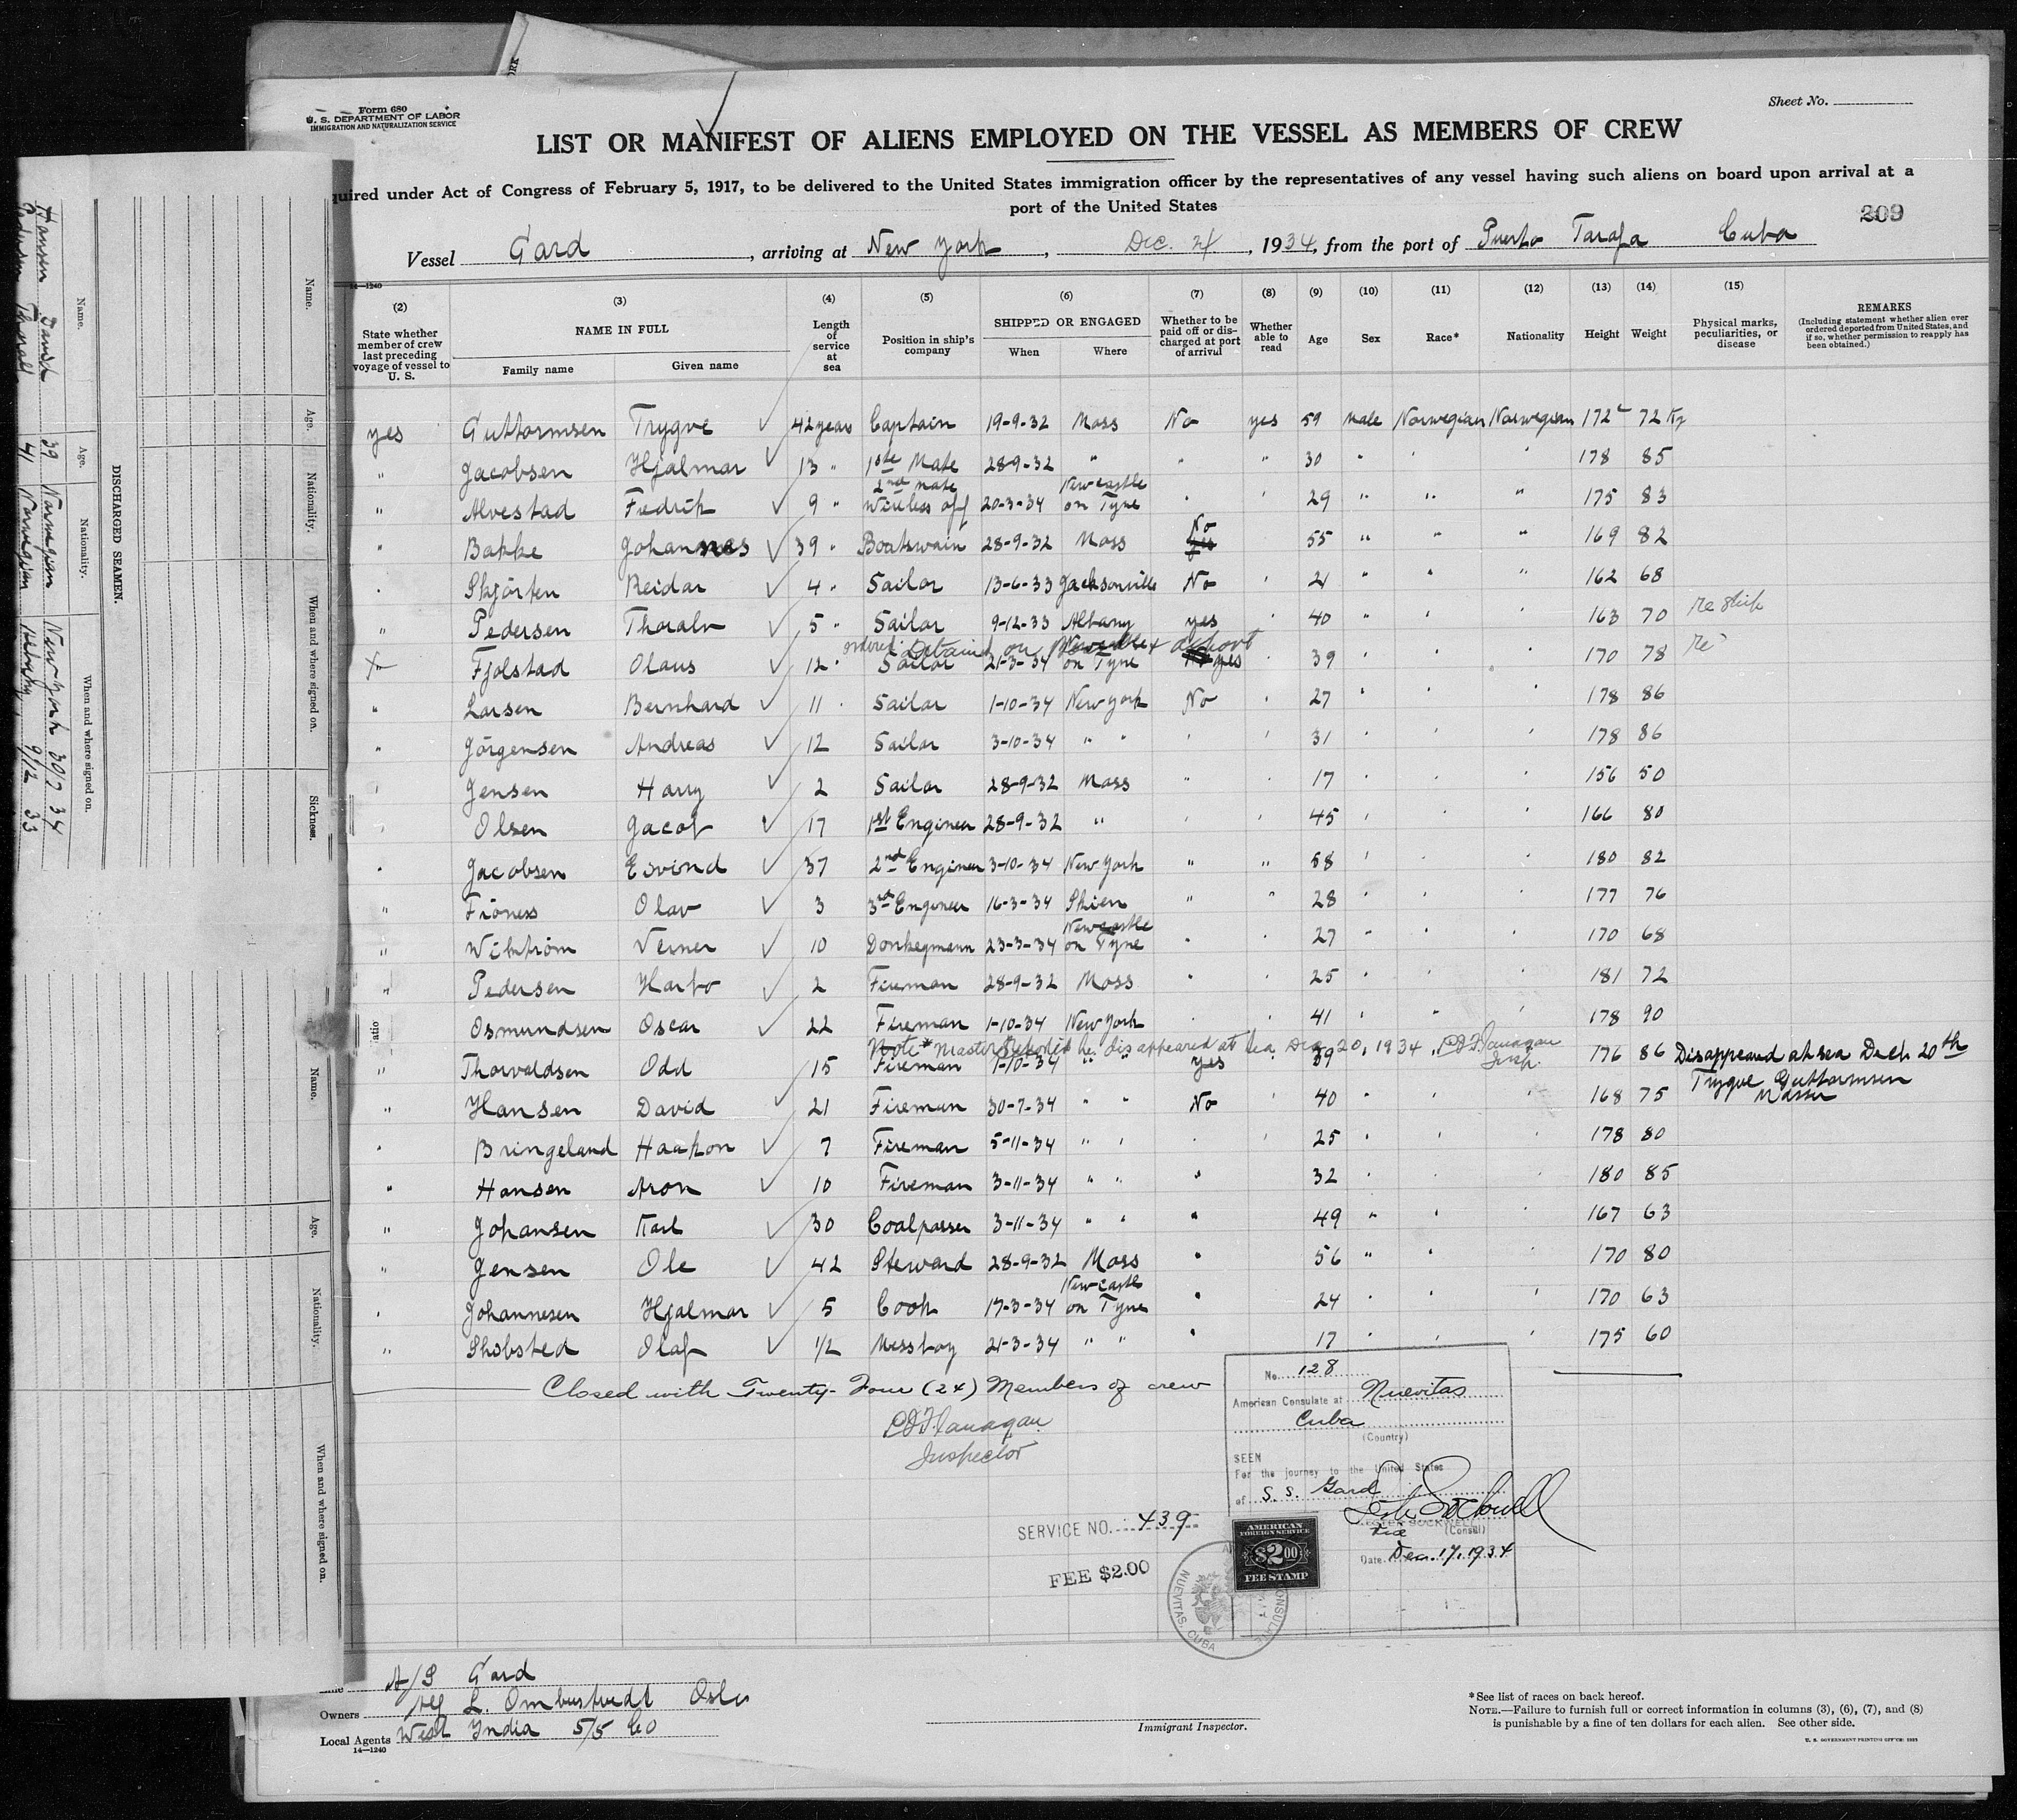 Form 680
U. S. DEPARTMENT OF LABOR
IMMIGRATION AND NATURALIZATION SERVICE
Sheet No.
LIST OR MANIFEST OF ALIENS EMPLOYED ON THE VESSEL AS MEMBERS OF CREW
quired under Act of Congress of February 5, 1917, to be delivered to the United States immigration officer by the representatives of any vessel having such aliens on board upon arrival at a
port of the United States
209
Vessel Gard, arriving at New York, Dec. 24, 1934, from the port of Puerto Tarafa Cuba
14—1240
(2) (3) (4) (5) (6) (7) (8) (9) (10) (11) (12) (13) (14) (15)
State whether member of crew last preceding voyage of vessel to U. S.
NAME IN FULL
Family name Given name
Length of service at sea
Position in ship's company
SHIPPED OR ENGAGED
When Where
Whether to be paid off or discharged at port of arrival
Whether able to read
Age
Sex
Race*
Nationality
Height
Weight
Physical marks, peculiarities, or disease
REMARKS
(Including statement whether alien ever ordered deported from United States, and if so, whether permission to reapply has been obtained.)
yes Guttormsen Trygve 42 years Captain 19-9-32 Moss No yes 59 Male Norwegian Norwegian 172 72 Kg
" Jacobsen Hjalmar 13 " 1ste Mate 28-9-32 " " " 30 " " " 178 85
2nd mate Newcastle
" Alvestad Fredrik 9 " Wireless off 20-3-34 on Tyne " " 29 " " " 175 83
No
" Bakke Johannes 39 " Boatswain 28-9-32 Moss yes 55 " " " 169 82
" Skjörten Reidar 4 " Sailor 13-6-33 Jacksonville No " 21 " " " 162 68
" Pedersen Thoralv 5 " Sailor 9-12-33 Albany yes " 40 " " " 163 70 Re ship
ordered Detained on Newcastle deport
Fjolstad Olaus 12 " Sailor 21-3-34 on Tyne yes " 39 " " " 170 78 Re
" Larsen Bernhard 11 " Sailor 1-10-34 New York No " 27 " " " 178 86
" Jörgensen Andreas 12 Sailor 3-10-34 " " " " 31 " " " 178 86
" Jensen Harry 2 Sailor 28-9-32 Moss " " 17 " " " 156 50
" Olsen Jacob 17 1st Engineer 28-9-32 " " " 45 " " " 166 80
" Jacobsen Eivind 37 2nd Engineer 3-10-34 New York " " 58 " " " 180 82
" Olav 3 3rd Engineer 16-3-34 Skien " " 28 " " " 177 76
Newcastle
" Verner 10 Donkeymann 23-3-34 on Tyne " " 27 " " " 170 68
" Pedersen 2 Fireman 28-9-32 Moss " " 25 " " " 181 72
" Osmundsen Oscar 22 Fireman 1-10-34 New York " " 41 " " " 178 90
Note * Master Reported he disappeared at sea Dec 20, 1934 P J Flanagan Insp.
" Thorvaldsen Odd 15 Fireman 1-10-34 " " yes 39 176 86 Disappeared at sea Dec. 20th
Trygve Guttormsen
Master
" Hansen David 21 Fireman 30-7-34 " " No " 40 " " " 168 75
" Bringeland Haakon 7 Fireman 5-11-34 " " " " 25 " " " 178 80
" Hansen Aron 10 Fireman 3-11-34 " " " 32 " " " 180 85
" Johansen Karl 30 Coalpasser 3-11-34 " " " 49 " " " 167 63
" Jensen Ole 42 Steward 28-9-32 Moss " 56 " " " 170 80
Newcastle
" Johannesen Hjalmar 5 Cook 17-3-34 on Tyne " 24 " " " 170 63
" Olaf 1/2 Messboy 21-3-34 " " " 17 " " " 175 60
Closed with Twenty-Four (24) Members of crew
P J Flanagan
Inspector
No. 128
American Consulate at Nuevitas
Cuba
(Country)
SEEN
For the journey to the United States
of S. S. Gard
Vice (Consul)
Date Dec. 17, 1934
SERVICE NO. 439
FEE $2.00
AMERICAN
FOREIGN SERVICE
$2.00
FEE STAMP
NUEVITAS, CUBA
A/S Gard
Owners L. Oslo
Local Agents West India S/S Co
14—1240
Immigrant Inspector.
*See list of races on back hereof.
NOTE.—Failure to furnish full or correct information in columns (3), (6), (7), and (8)
is punishable by a fine of ten dollars for each alien. See other side.
U. S. GOVERNMENT PRINTING OFFICE
DISCHARGED SEAMEN.
Name. Age. Nationality. When and where signed on.
Hansen David 39 Norwegian New York 30/7 34
Pedersen Thoralf 41 Norwegian 9/12 33
Name. Age. Nationality. When and where signed on. Sickness.
Name. Age. Nationality. When and where signed on.